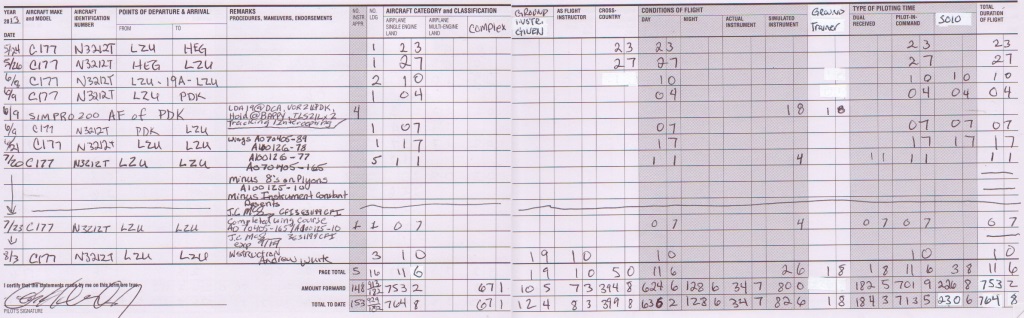 YEAR 2013 AIRCRAFT MAKE and MODEL AIRCRAFT IDENTIFICATION NUMBER POINTS OF DEPARTURE & ARRIVAL REMARKS PROCEDURES, MANEUVERS, ENDORSEMENTS NO. INSTR APPR NO. LDG AIRCRAFT CATEGORY and CLASSIFICATION GROUND INSTR. GIVEN AS FLIGHT INSTRUCTOR CROSS-COUNTRY CONDITIONS OF FLIGHT GROUND Trainer TYPE OF PILOTING TIME TOTAL DURATION OF FLIGHT
DATE FROM TO AIRPLANE SINGLE-ENGINE LAND AIRPLANE MULTI-ENGINE LAND Complex DAY NIGHT ACTUAL INSTRUMENT SIMULATED INSTRUMENT DUAL RECEIVED PILOT-IN-COMMAND SOLO
5/24 C177 N3212T LZU HEG 1 2 3 2 3 2 3 2 3 2 3
5/26 C177 N3212T HEG LZU 1 2 7 2 7 2 7 2 7 2 7
6/8 C177 N3212T LZU-19A-LZU 2 1 0 1 0 1 0 1 0 1 0
6/9 C177 N3212T LZU PDK 1 0 4 0 4 0 4 0 4 0 4
6/9 SIM PRO 200 AF of PDK 4 1 8 1 8
Tracking Intercepting
6/9 C177 N3212T PDK LZU 1 0 7 0 7 0 7 0 7 0 7
6/21 C177 N3212T LZU LZU Wings A070405-89 1 1 7 1 7 1 7 1 7 1 7
A100126-78
7/20 C177 N3212T LZU LZU A100126-77 5 1 1 1 1 4 1 1 1 1 1 1
A070405-165
minus 8's on Plyons
A100125-10
minus Instrument Constant
Desents
7/23 C177 N3212T LZU LZU Completed Wing Course 1 1 0 7 0 7 4 0 7 0 7 0 7
8/3 C177 N3212T LZU LZU Instruction 3 1 0 1 9 1 0 1 0 1 0 1 0
Andrew
PAGE TOTAL 5 16 11 6 1 9 1 0 5 0 11 6 2 6 1 8 1 8 11 6 3 8 11 6
I certify that the statements made by me on this form are true.
AMOUNT FORWARD 148 753 2 67 1 10 5 7 3 394 8 624 6 128 6 34 7 80 0 182 5 701 9 226 8 753 2
TOTAL TO DATE 153 764 8 67 1 12 4 8 3 399 8 636 2 128 6 34 7 82 6 1 8 184 3 713 5 230 6 764 8
PILOT'S SIGNATURE